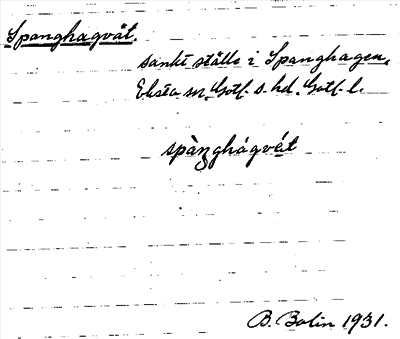 Spanghagvät.
sankt ställe i Spanghagen,
Eksta sn, Gotl. s. hd. Gotl. l.
spànghágvét
B. Bolin 1931.